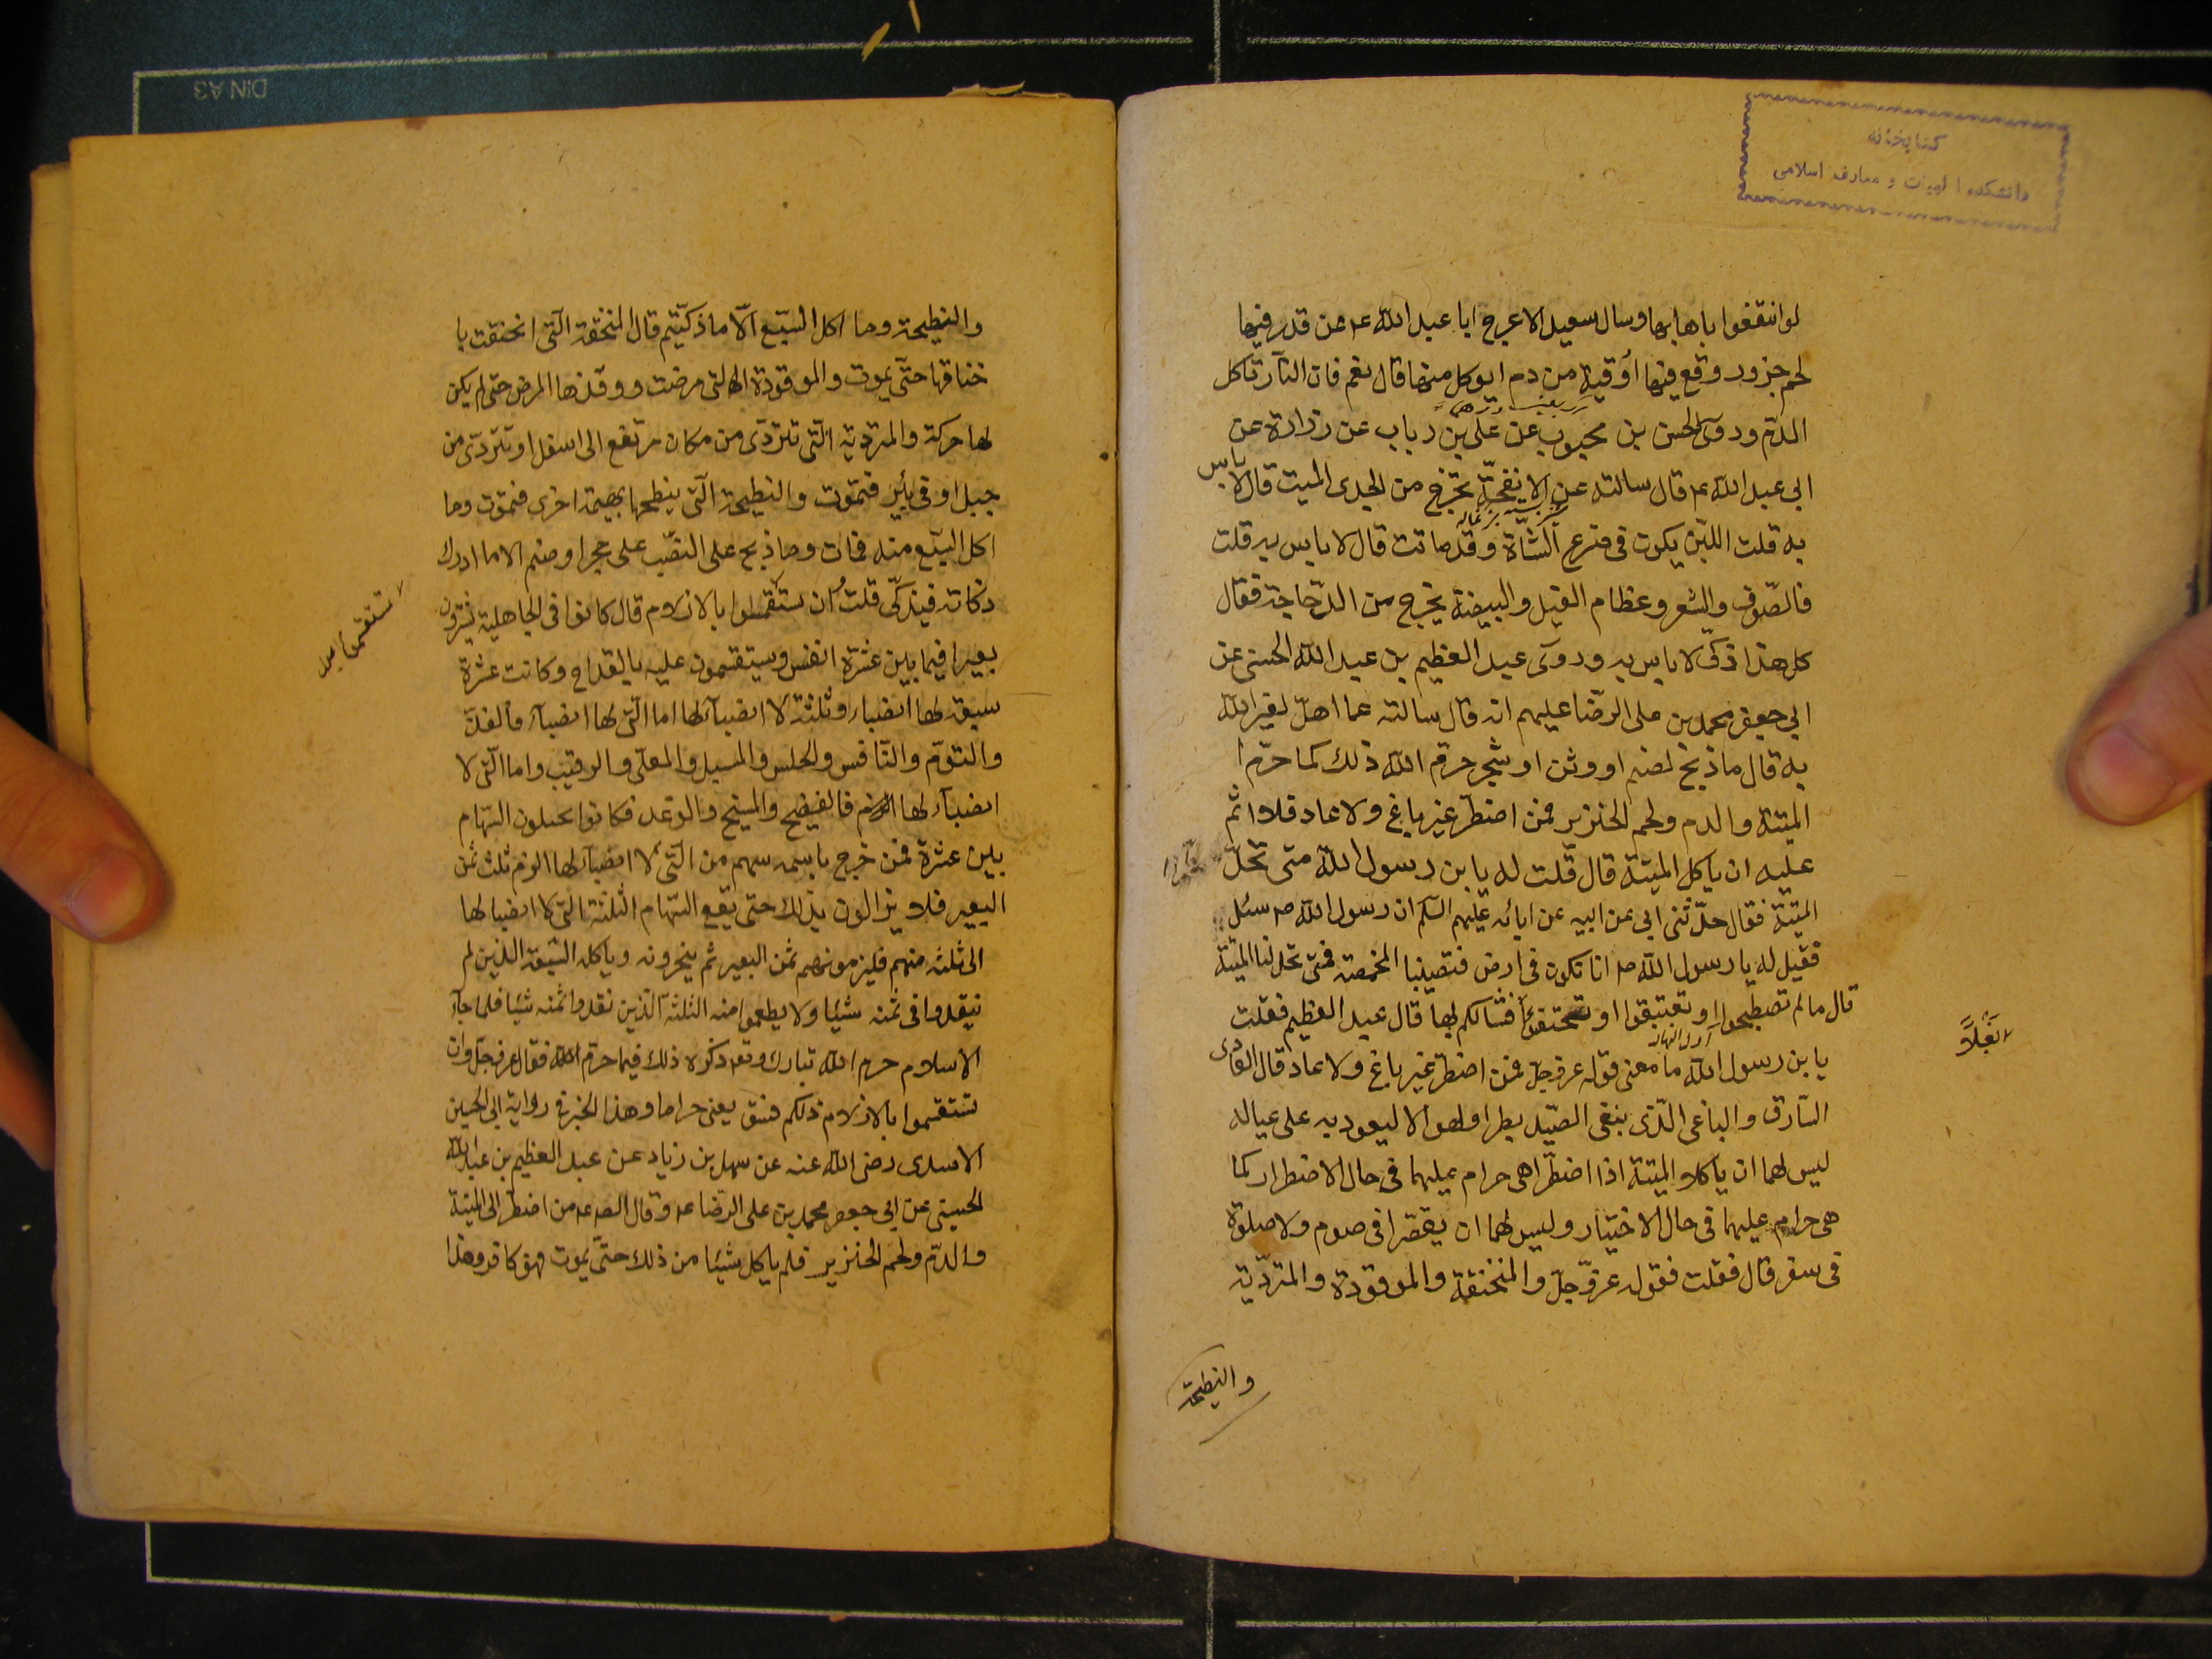 كتابخانه
دانشكده الهيات و معارف اسلامى
لو انتفعوا باهابها وسال سعيد الاعرج ابا عبد الله عـ عن قدر فيها
لحم جزور وقع فيها أوقية من دم ايوكل منها قال نعم فان النار تاكل
الدّم وروى الحسن بن محبوب عن على بن رباب عن زرارة عن
ابى عبد الله عـ قال سالته عن الانفحة تخرج من الجدى الميت قال لا باس
به قلت اللبن يكون فى ضرع الشاة وقد ماتت قال لا باس به قلت
فالصّوف والشعر وعظام الفيل والبيضة يخرج من الدّجاجة فقال
كل هذا ذكىّ لا باس به وروى عبد العظيم بن عبد الله الحسنى عن
ابى جعفر محمد بن على الرضا عليهم انه قال سالته عما اهلّ لغير الله
به قال ما ذبح لصنم او وثن او شجر حرم الله ذلك كما حرّم
الميتة والدم ولحم الخنزير فمن اضطرّ غير باغ ولا عاد فلا اثم
عليه ان ياكل الميتة قال قلت له يا بن رسول الله متى تحلّ
الميتة فقال حدّثنى ابى عن ابيه عن ابائه عليهم السّلم ان رسول الله صـ سئل
فقيل له يا رسول الله صـ انا نكون فى ارض فتصيبنا المخمصة فمتى تحل لنا الميتة
قال ما لم تصطبحوا او تغتبقوا او تحتفئوا فشانكم بها قال عبد العظيم فقلت
اول النهار
بَقْلاً
يا بن رسول الله ما معنى قوله عزوجلّ فمن اضطر غير باغ ولا عاد قال العادى
السّارق والباغى الذى يبغى الصّيد بطرا ولهوا لا ليعود به على عياله
ليس لهما ان ياكلا الميتة اذا اضطرّا هى حرام عليهما فى حال الاضطرار كما
هى حرام عليهما فى حال الاختيار وليس لهما ان يقصّرا فى صوم ولا صلوة
فى سفر قال فقلت فقوله عزوجلّ والمنخنقة والموقوذة والمتردّية
والنطيحة
والنطيحة وما اكل السّبع الّا ما ذكّيتم قال المنخنقة الّتى انخنقت با
خناقها حتّى يموت والموقوذة التى مرضت ووقذها المرض حتى لم يكن
لها حركة والمتردية الّتى تتردّى من مكان مرتفع الى اسفل او تتردّى من
جبل او فى بأير فتموت والنطيحة الّتى ينطحها بهيمة اخرى فتموت وما
اكل السّبع منه فمات وما ذبح على النصب على حجر او صنم الا ما ادرك
ذكاته فيذكّى قلت وان تستقسموا بالازلام قال كانوا فى الجاهلية يشترون
تستقسموا
بعيرا فيما بين عشرة انفس ويستقسمون عليه بالقداح وكانت عشرة
سبعة لها انصباء وثلثة لا انصباء لها اما الّتى لها انصباء فالفذّ
والتوّم والنّافس والحلس والمسبل والمعلّى والرقيب واما الّتى لا
انصباء لها فالفسيح والمنيح والوغد فكانوا يجيلون السّهام
بين عشرة فمن خرج باسمه سهم من الّتى لا انصباء لها الزم ثلث ثمن
البعير فلا يزالون بذلك حتى يقع السّهام الثلثة التى لا انصبا لها
الى ثلثه منهم فليزمونهم ثمن البعير ثم ينحرونه وياكله السّبعة الذين لم
ينقدوا فى ثمنه شيئا ولا يطعموا منه الثلثة الّذين نقدوا ثمنه شيئا فلما جاء
الاسلام حرم الله تبارك وتع ذكره ذلك فيما حرّم الله فقال عزوجلّ وان
تستقسموا بالازلام ذلكم فسق يعنى حراما وهذا الخبر فى رواية ابى الحسين
الاسدى رضى الله عنه عن سهل بن زياد عن عبد العظيم بن عبد الله
الحسينى عن ابى جعفر محمد بن على الرّضا عـ وقال الصـ عـ من اضطرّ الى الميتة
والدّم ولحم الخنزير فلم ياكل شيئا من ذلك حتّى يموت فهو كافر وهذا